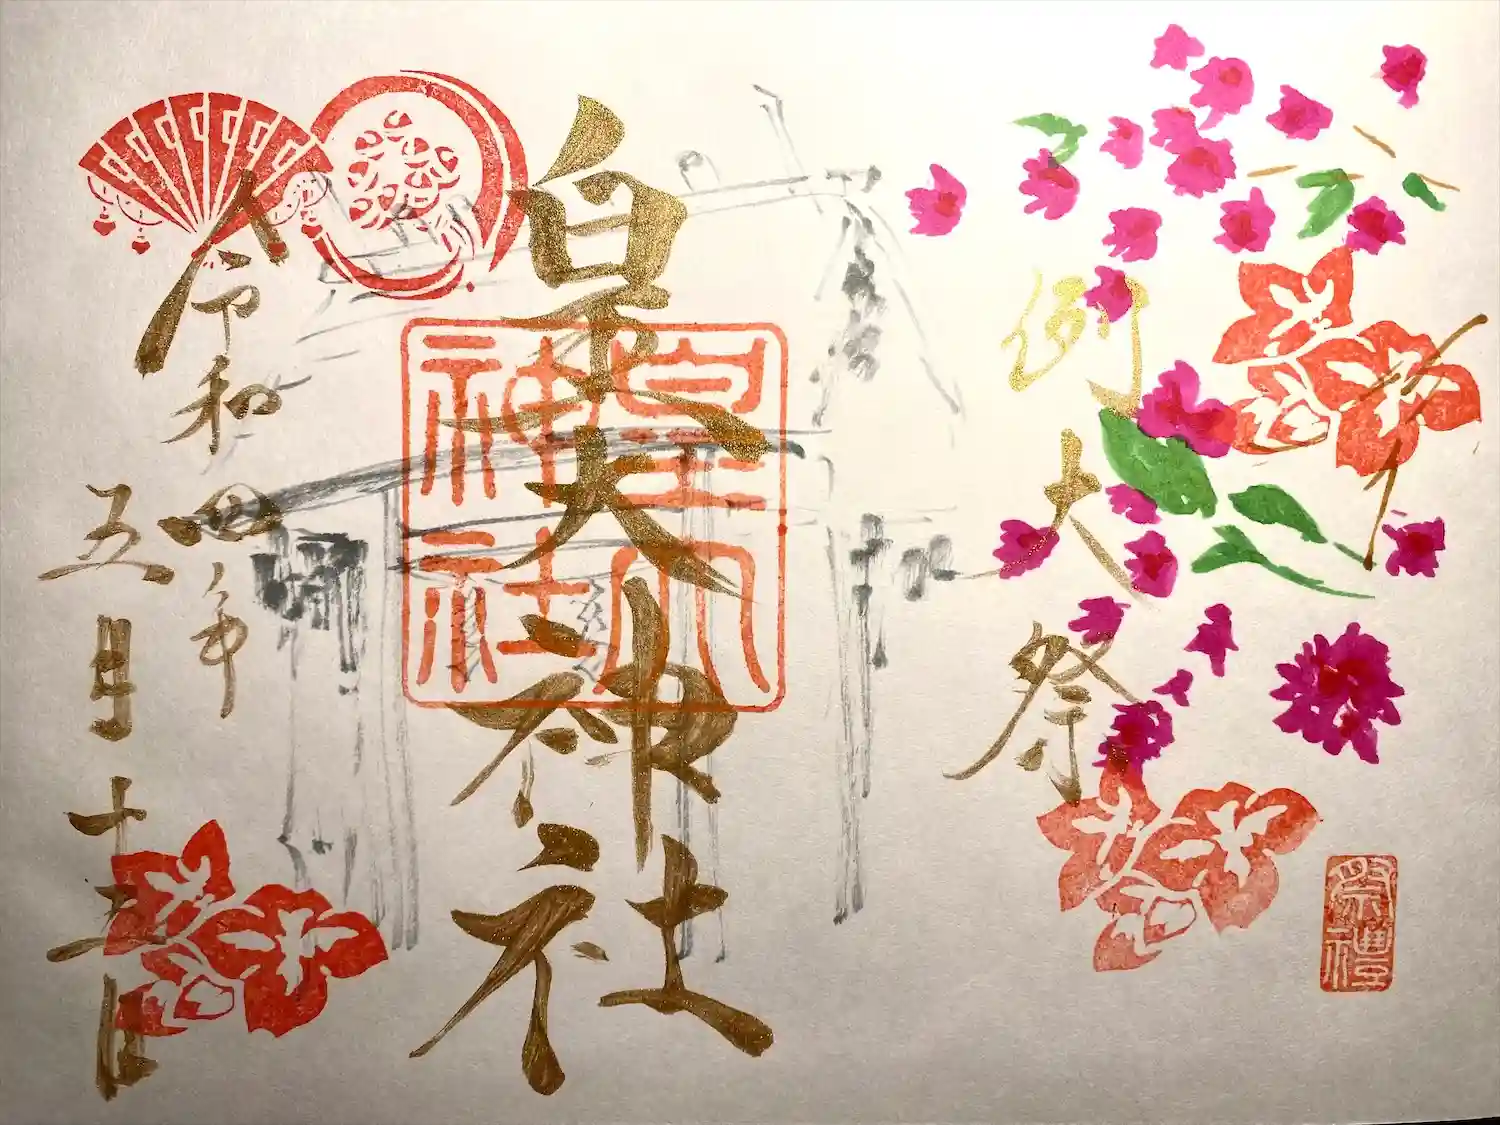 祭禮
例大祭
皇大神社
皇大
神社
令和四年
五月十五日